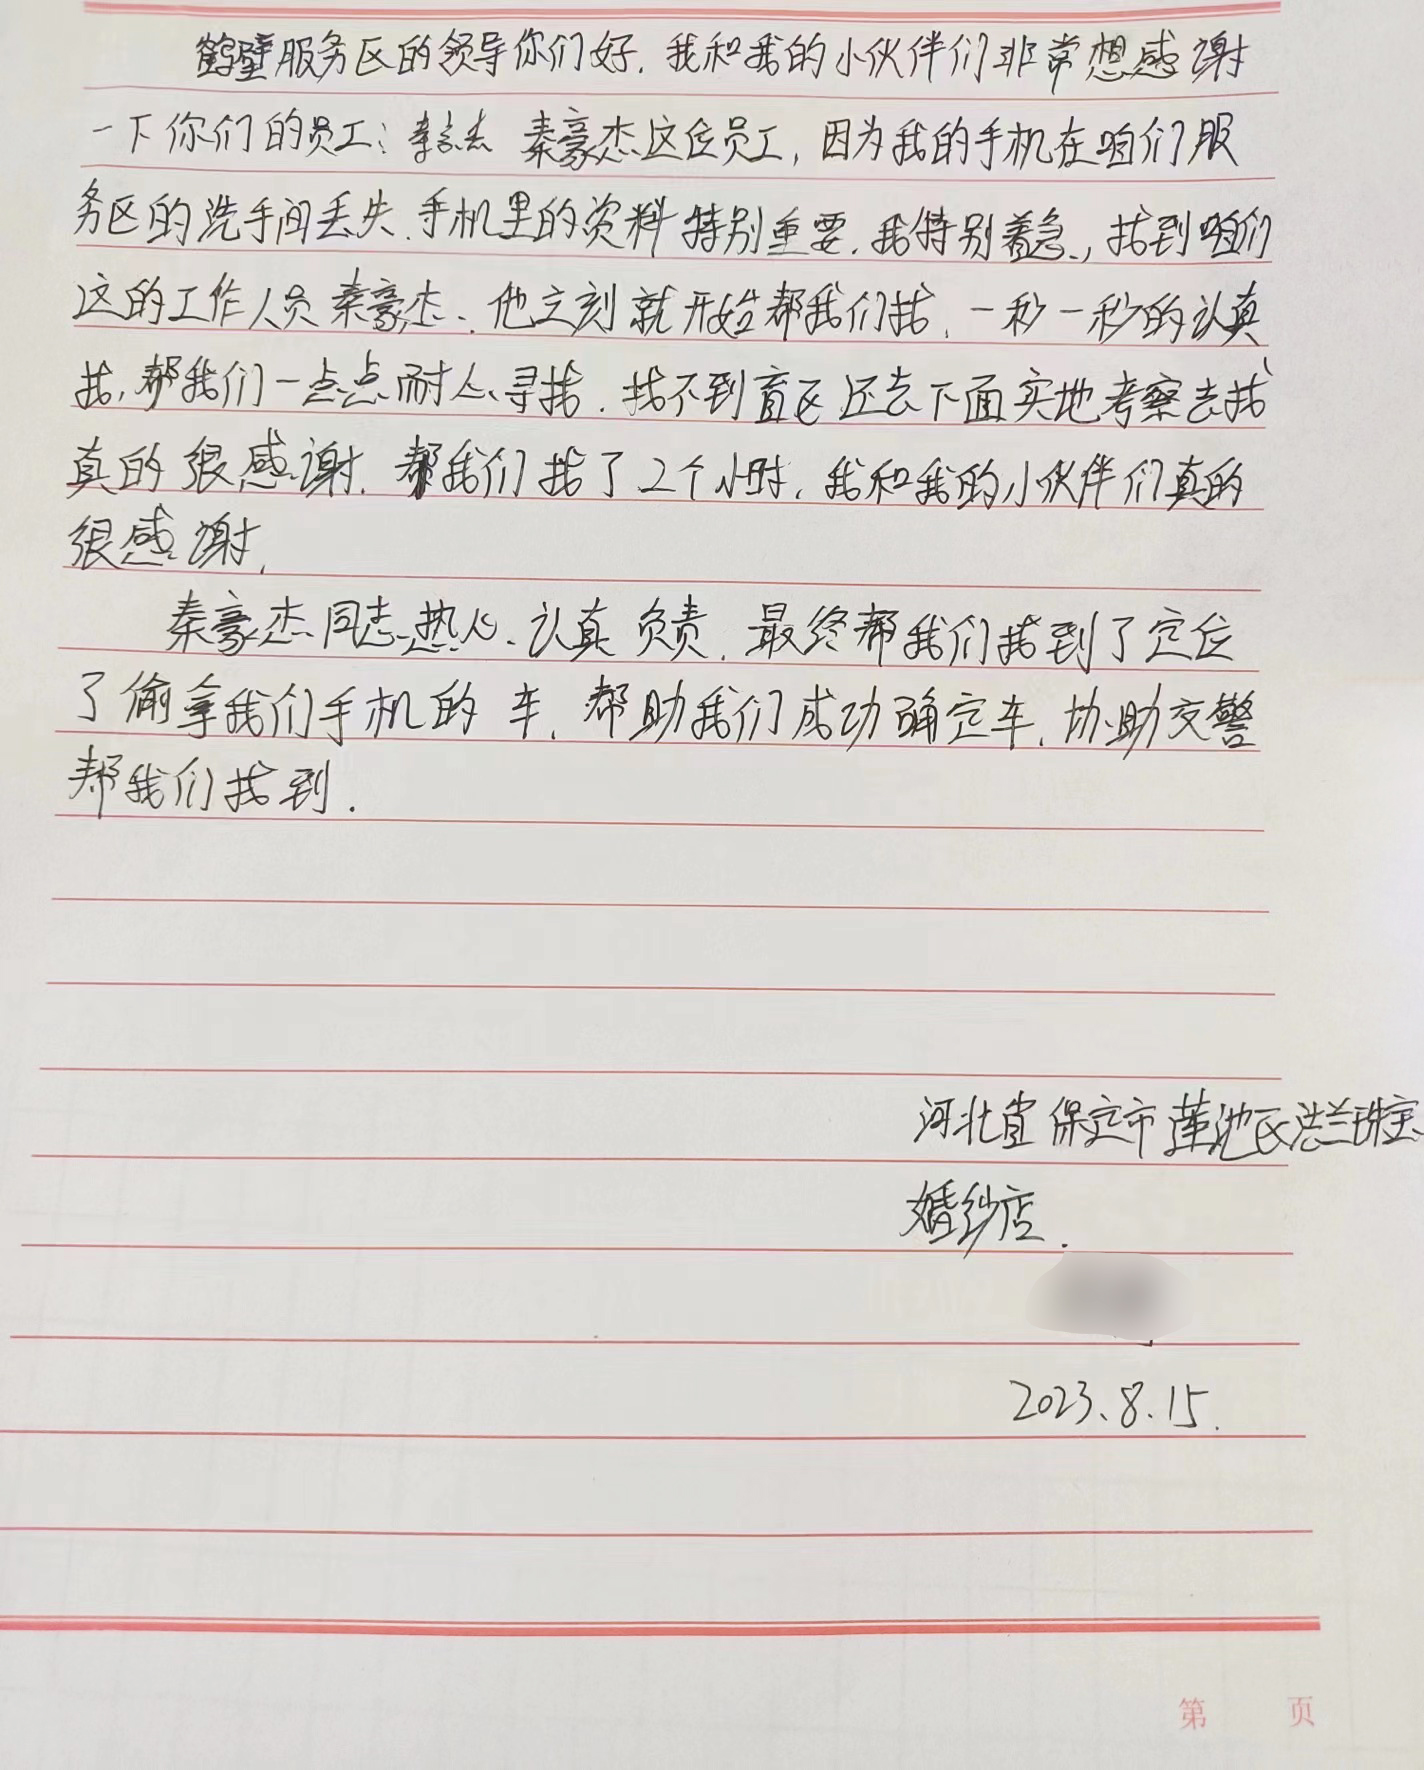 鹤壁服务区的领导你们好.我和我的小伙伴们非常想感谢
一下你们的员工:秦豪杰这位员工,因为我的手机在咱们服
务区的洗手间丢失.手机里的资料特别重要.我特别着急.,找到咱们
这的工作人员秦豪杰.他立刻就开始帮我们找.一秒一秒的认真
找,帮我们一点点耐心寻找.找不到盲区还去下面实地考察去找
真的很感谢.帮我们找了2个小时.我和我的小伙伴们真的
很感谢.
秦豪杰同志热心、认真负责.最终帮我们找到了定位
了偷拿我们手机的车.帮助我们成功确定车.协助交警
帮我们找到.
河北省保定市莲池区法兰珠宝
婚纱店.
2023.8.15.
第 页